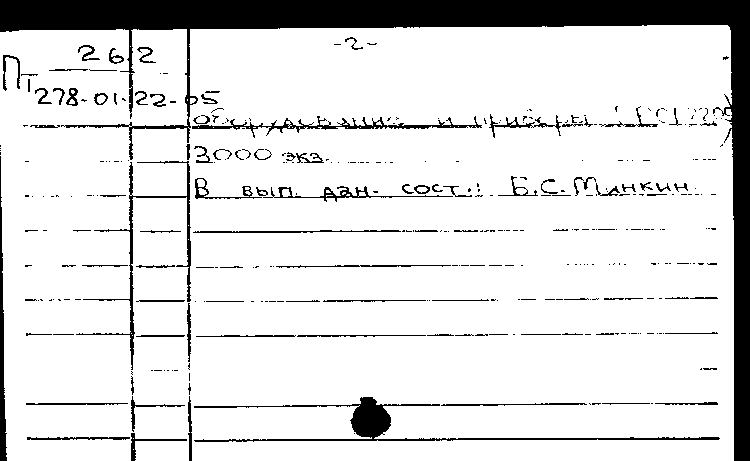 262
-2-
Пт
278-01-22-05
оборудование и приборы
3000 экз.
В вып. дан. сост.: Б.С. Минкин